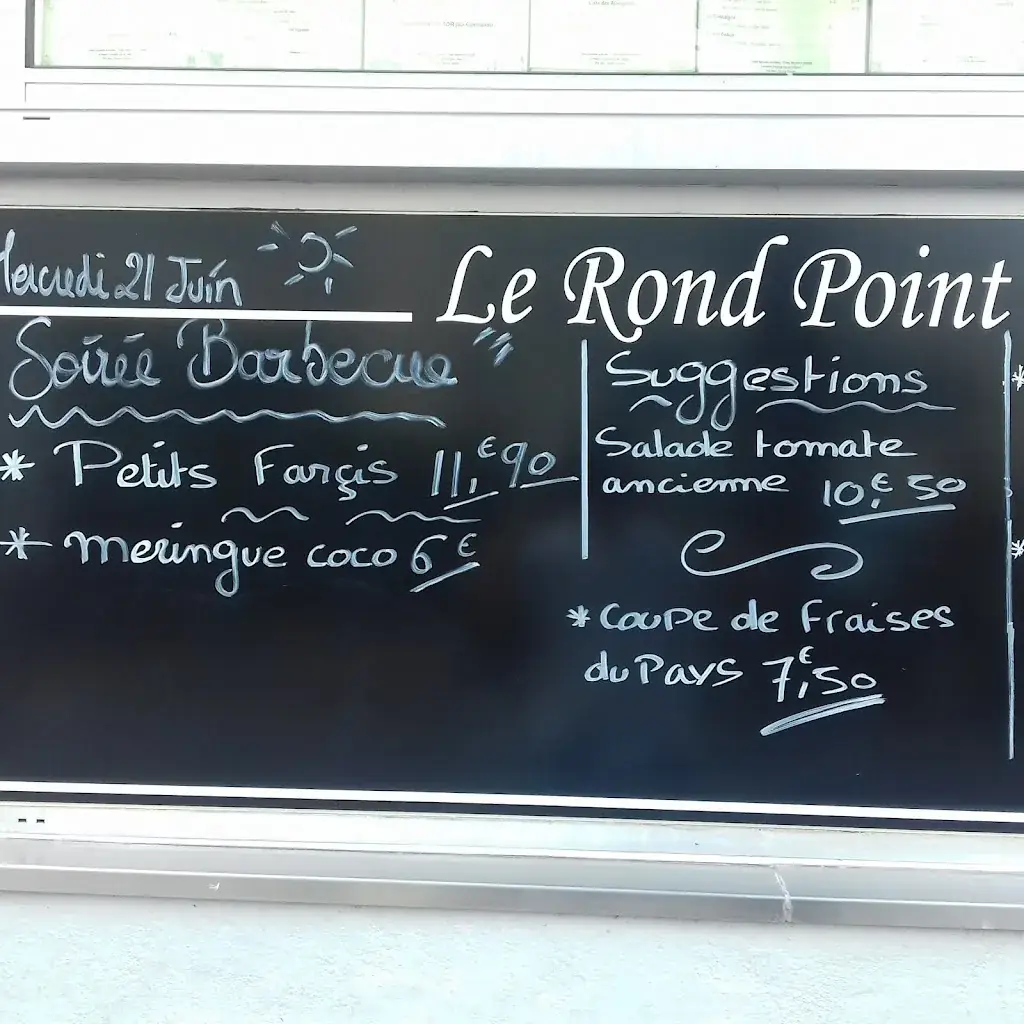 Mercredi 21 Juin
Le Rond Point
Soirée Barbecue
* Petits Farçis 11,€90
* Meringue coco 6€
Suggestions
Salade tomate
ancienne 10,€50
* Coupe de Fraises
du Pays 7,€50
*
*